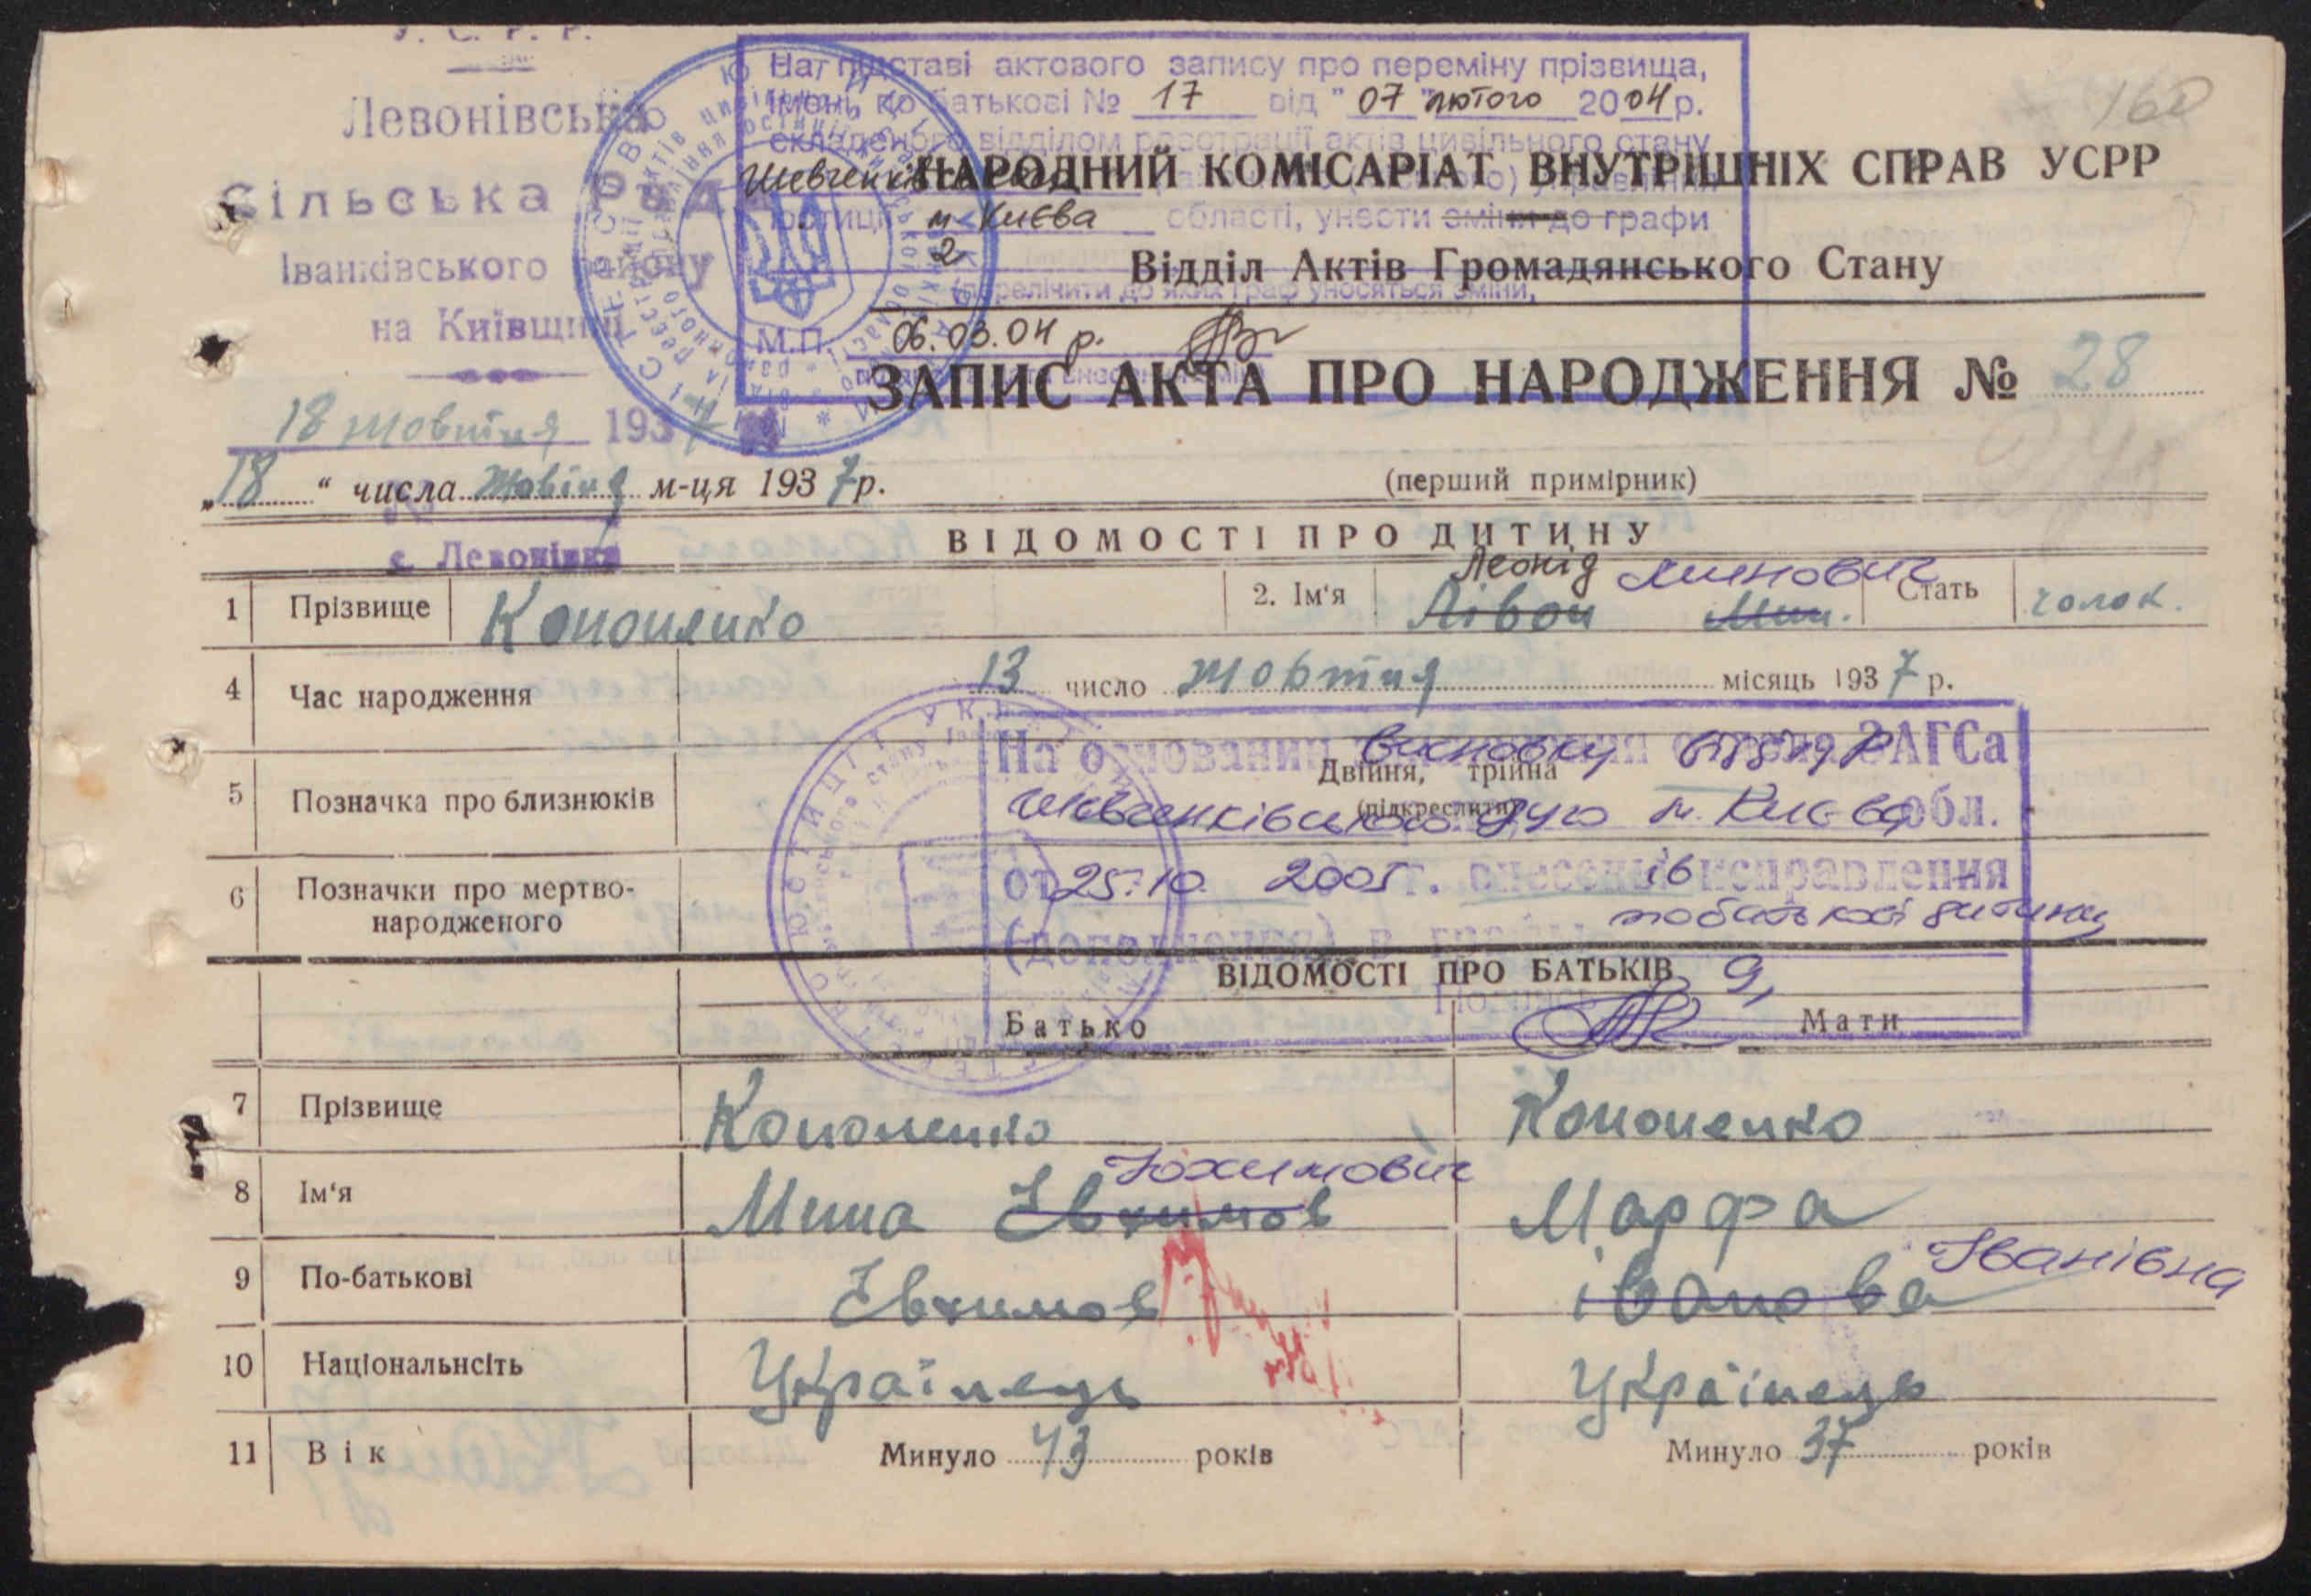 У. С. Р. Р.
Левонівська
Сільська Рада
Іванківського району
на Київщині
18 жовтня 1937
На підставі актового запису про переміну прізвища,
імені, по батькові № 17 від "07" лютого 2004 р.
складеного відділом реєстрації актів цивільного стану
юстиції м. Києва області, унести зміни до графи
2
(перелічити до яких граф уносяться зміни,
М.П. 06.03.04 р.
160
НАРОДНИЙ КОМІСАРІАТ ВНУТРІШНІХ СПРАВ УСРР
Відділ Актів Громадянського Стану
ЗАПИС АКТА ПРО НАРОДЖЕННЯ № 28
„18“ числа жовтня м-ця 1937 р.
(перший примірник)
с. Левонівка
ВІДОМОСТІ ПРО ДИТИНУ
Леонід Минович
1 Прізвище Кононенко 2. Ім‘я Лівон Мин. Стать чолок.
4 Час народження 13 число жовтня місяць 1937 р.
На основании висновку відділу РАГСа
5 Позначка про близнюків Двійня, трійна
(підкреслити)
Шевченківського РУЮ м. Києва обл.
от 25.10 2005 г. внесены исправления
6 Позначки про мертво-
народженого
по батькові дитини
(дополнения) в графы
ВІДОМОСТІ ПРО БАТЬКІВ 9,
Батько Мати
7 Прізвище Кононенко Кононенко
Юхимович
8 Ім‘я Мина Евхимов Марфа
Іванівна
9 По-батькові Евхимов іванова
10 Національнсіть Українець Українець
11 Вік Минуло 43 років Минуло 37 років